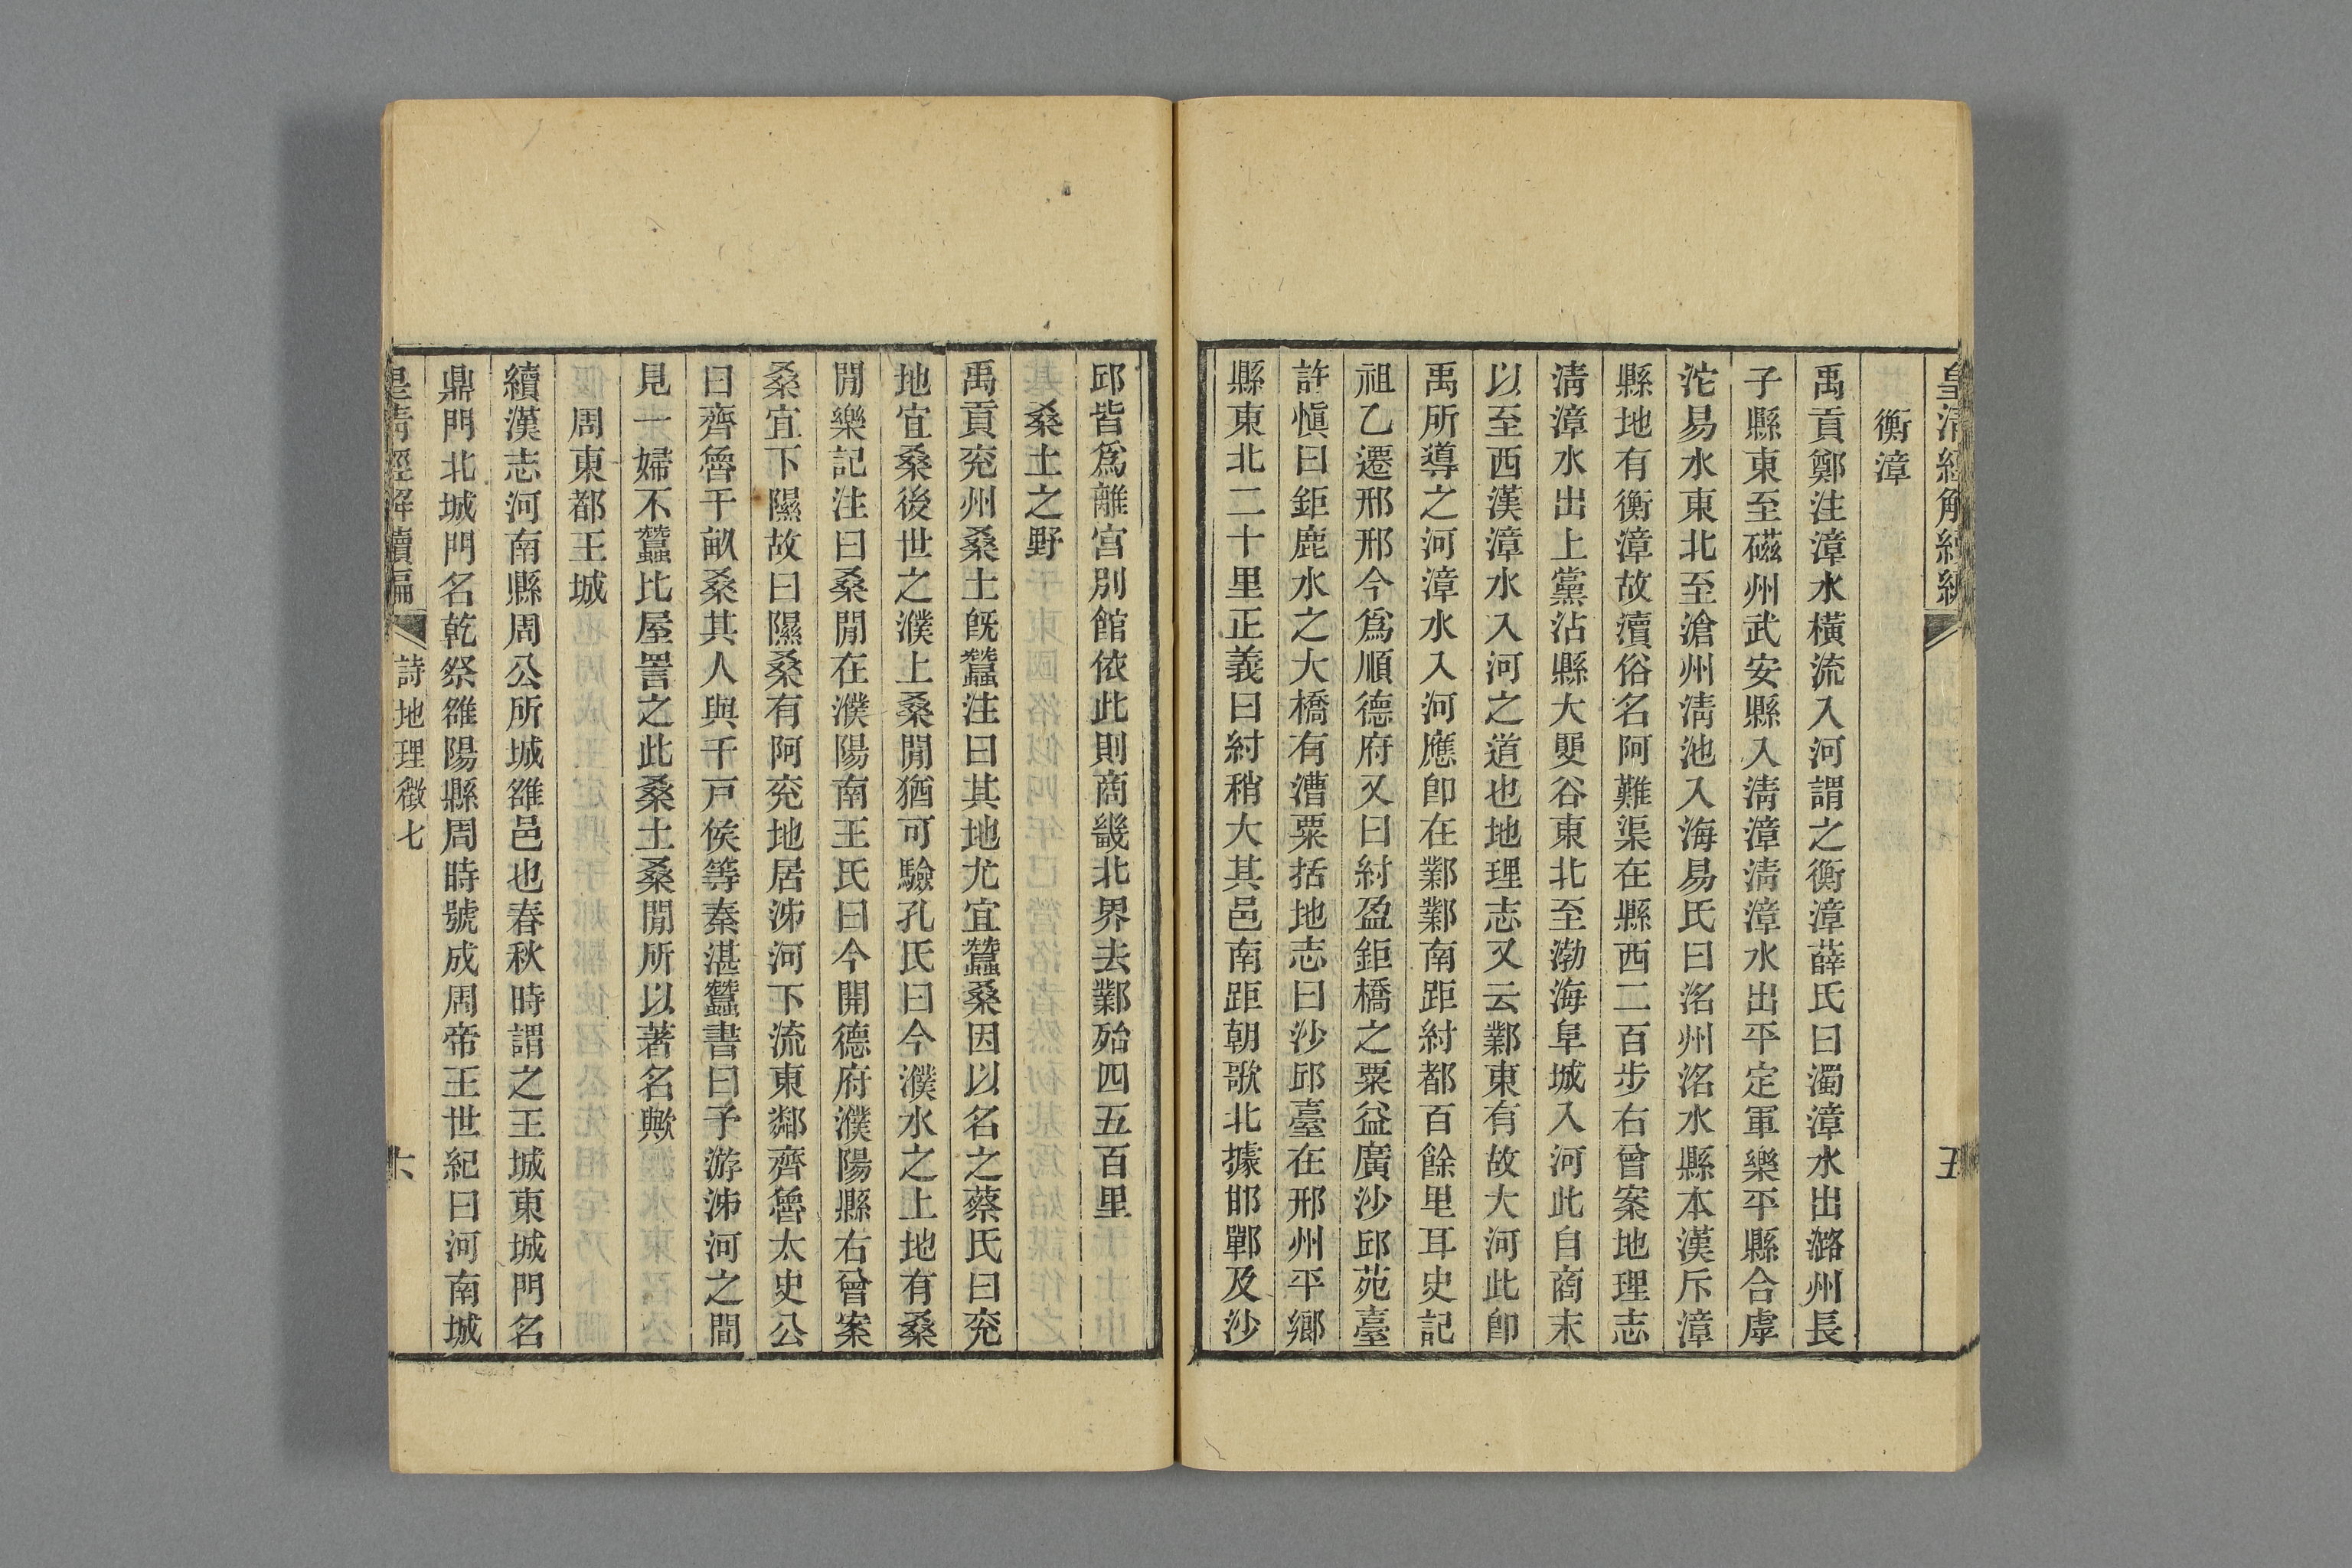 皇清經解續編
五
衡漳
禹貢鄭注漳水橫流入河謂之衡漳薛氏曰濁漳水出潞州長
子縣東至磁州武安縣入淸漳淸漳水出平定軍樂平縣合虖
沱易水東北至滄州淸池入海易氏曰洺州洺水縣本漢斥漳
縣地有衡漳故瀆俗名阿難渠在縣西二百步右曾案地理志
淸漳水出上黨沾縣大㚆谷東北至渤海阜城入河此自商末
以至西漢漳水入河之道也地理志又云鄴東有故大河此卽
禹所導之河漳水入河應卽在鄴鄴南距紂都百餘里耳史記
祖乙遷邢邢今爲順德府又曰紂盈鉅橋之粟益廣沙邱苑臺
許愼曰鉅鹿水之大橋有漕粟括地志曰沙邱臺在邢州平鄉
縣東北二十里正義曰紂稍大其邑南距朝歌北據邯鄲及沙
邱皆爲離宮別館依此則商畿北界去鄴殆四五百里
桑土之野
禹貢兖州桑土旣蠶注曰其地尤宜蠶桑因以名之蔡氏曰兖
地宜桑後世之濮上桑閒猶可驗孔氏曰今濮水之上地有桑
閒樂記注曰桑閒在濮陽南王氏曰今開德府濮陽縣右曾案
桑宜下隰故曰隰桑有阿兖地居泲河下流東鄰齊魯太史公
曰齊魯千畝桑其人與千戸侯等秦湛蠶書曰予游泲河之間
見一婦不蠶比屋詈之此桑土桑閒所以著名歟
周東都王城
續漢志河南縣周公所城雒邑也春秋時謂之王城東城門名
鼎門北城門名乾祭雒陽縣周時號成周帝王世紀曰河南城
皇清經解續編
詩地理徵七
六